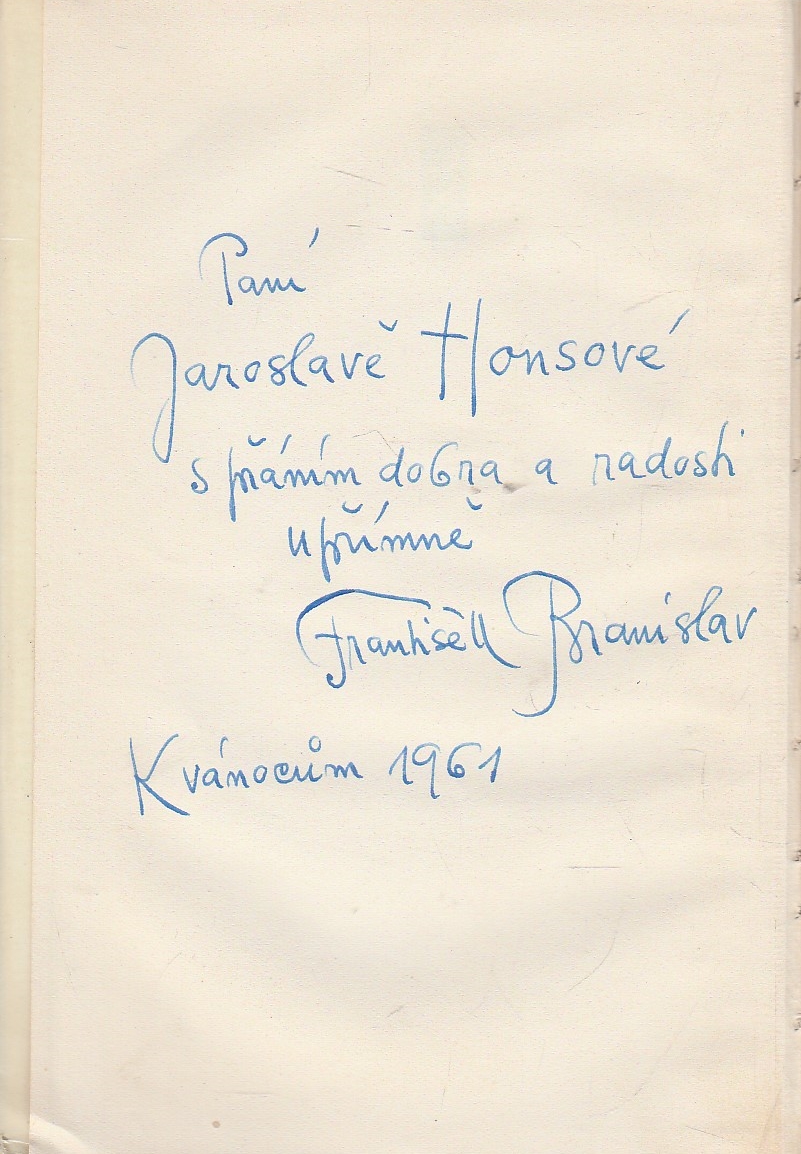 Paní
Jaroslavě Honsové
s přáním dobra a radosti
upřímně
František Branislav
K vánocům 1961